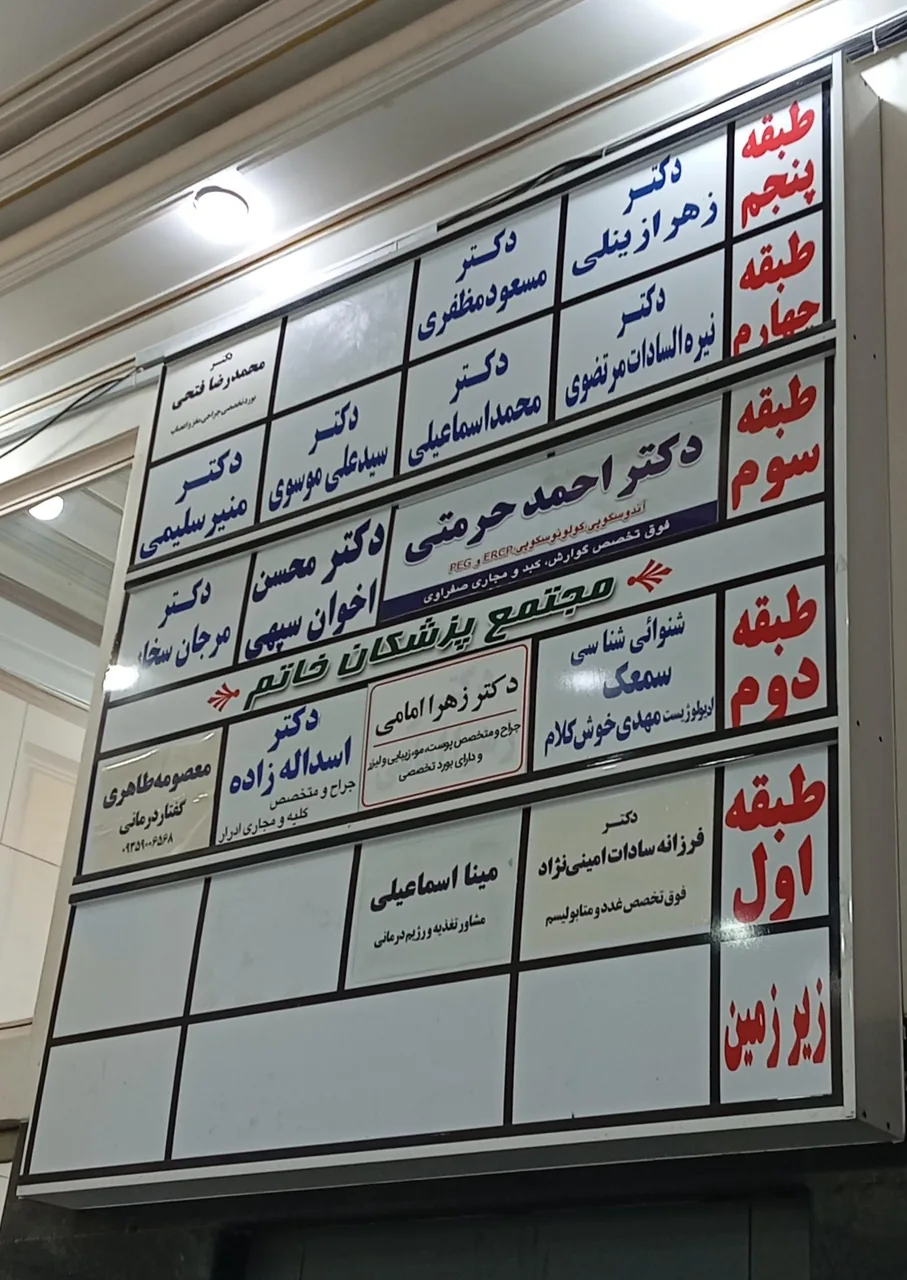 طبقه
پنجم
دکتر
زهرا زینلی
دکتر
مسعود مظفری
دکتر
محمدرضا فتحی
بورد تخصصی جراحی مغز و اعصاب
طبقه
چهارم
دکتر
نیره السادات مرتضوی
دکتر
محمد اسماعیلی
دکتر
سیدعلی موسوی
دکتر
منیر سلیمی
طبقه
سوم
دکتر احمد حرمتی
آندوسکوپی کولونوسکوپی ERCP و PEG
فوق تخصص گوارش، کبد و مجاری صفراوی
دکتر محسن
اخوان سپهی
دکتر
مرجان
مجتمع پزشکان خاتم
طبقه
دوم
شنوائی شناسی
سمعک
ادیولوژیست مهدی خوش کلام
دکتر زهرا امامی
جراح و متخصص پوست، مو، زیبایی و لیزر
و دارای بورد تخصصی
دکتر
اسداله زاده
جراح و متخصص
کلیه و مجاری ادرار
معصومه طاهری
گفتاردرمانی
۰۹۳۵۹۰۰۶۵۶۸
طبقه
اول
دکتر
فرزانه سادات امینی نژاد
فوق تخصص غدد و متابولیسم
مینا اسماعیلی
مشاور تغذیه و رژیم درمانی
زیر زمین